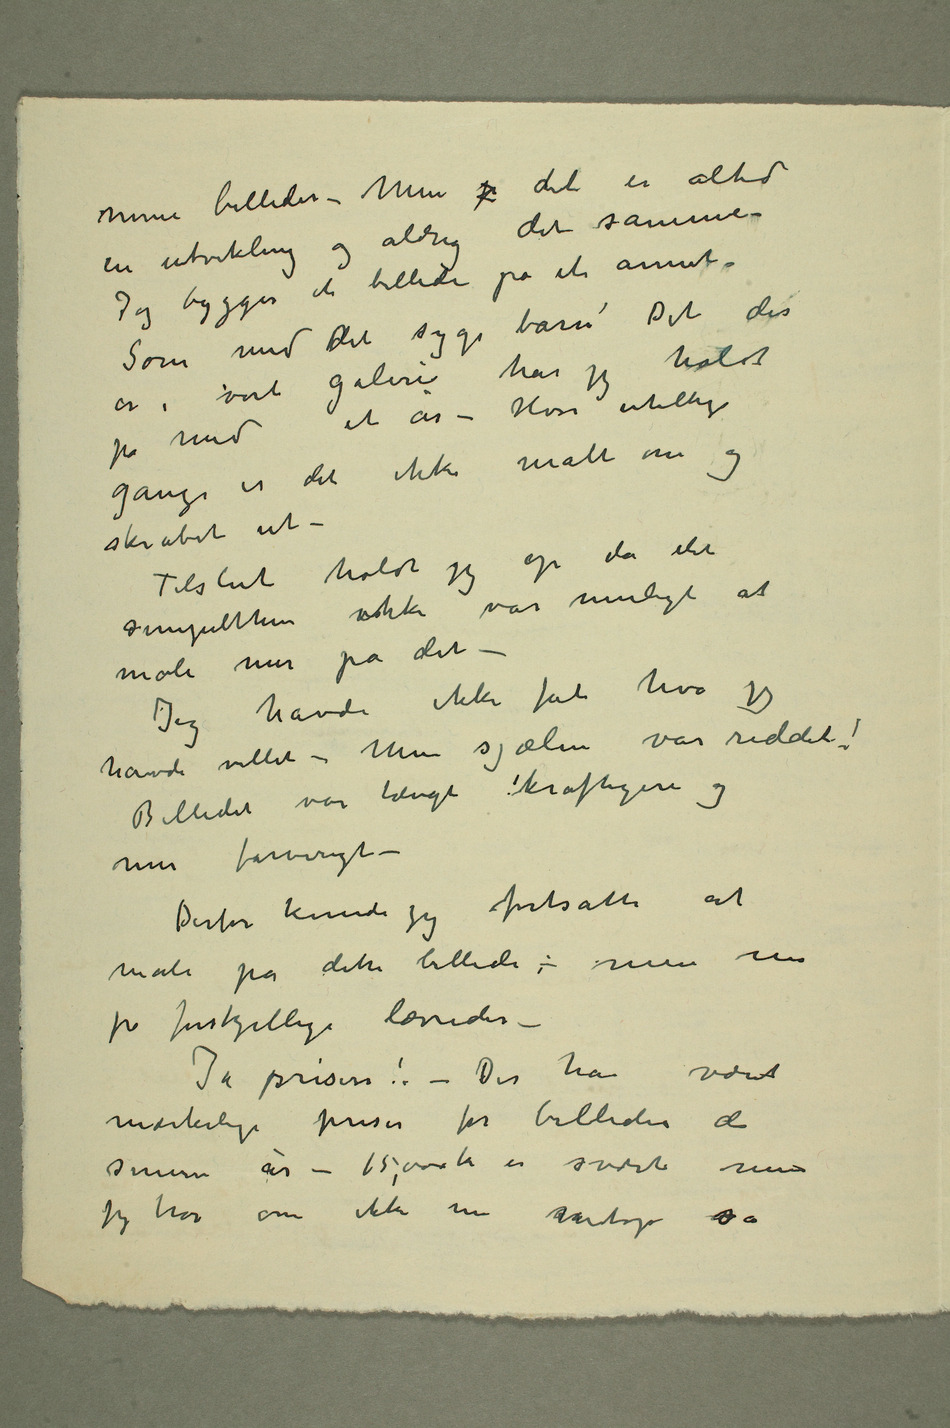 mine billeder – Men det er altid
en utvikling og aldrig det samme –
Jeg bygger et billede på et annet –
Som med det syge barn! Det der
er i vort galeri har jeg holdt
på med et år – Hvor utallige
gange er det ikke malt om og
skrabet ut –
Tilslut holdt jeg op da det
simpelthen ikke var muligt at
male mer på det –
Jeg havde ikke fåt hva jeg
havde villet – Men sjælen var reddet!
Billedet var tængt kraftigere og
mer farverigt –
Derfor kunde jeg fortsætte at
male på dette billede – men nu
på forskjellige lærreder –
Ja prisen! – Der har været
mærkelige priser for billeder de
senere år – 15,000 k er svært men
jeg tror om ikke en modtog så